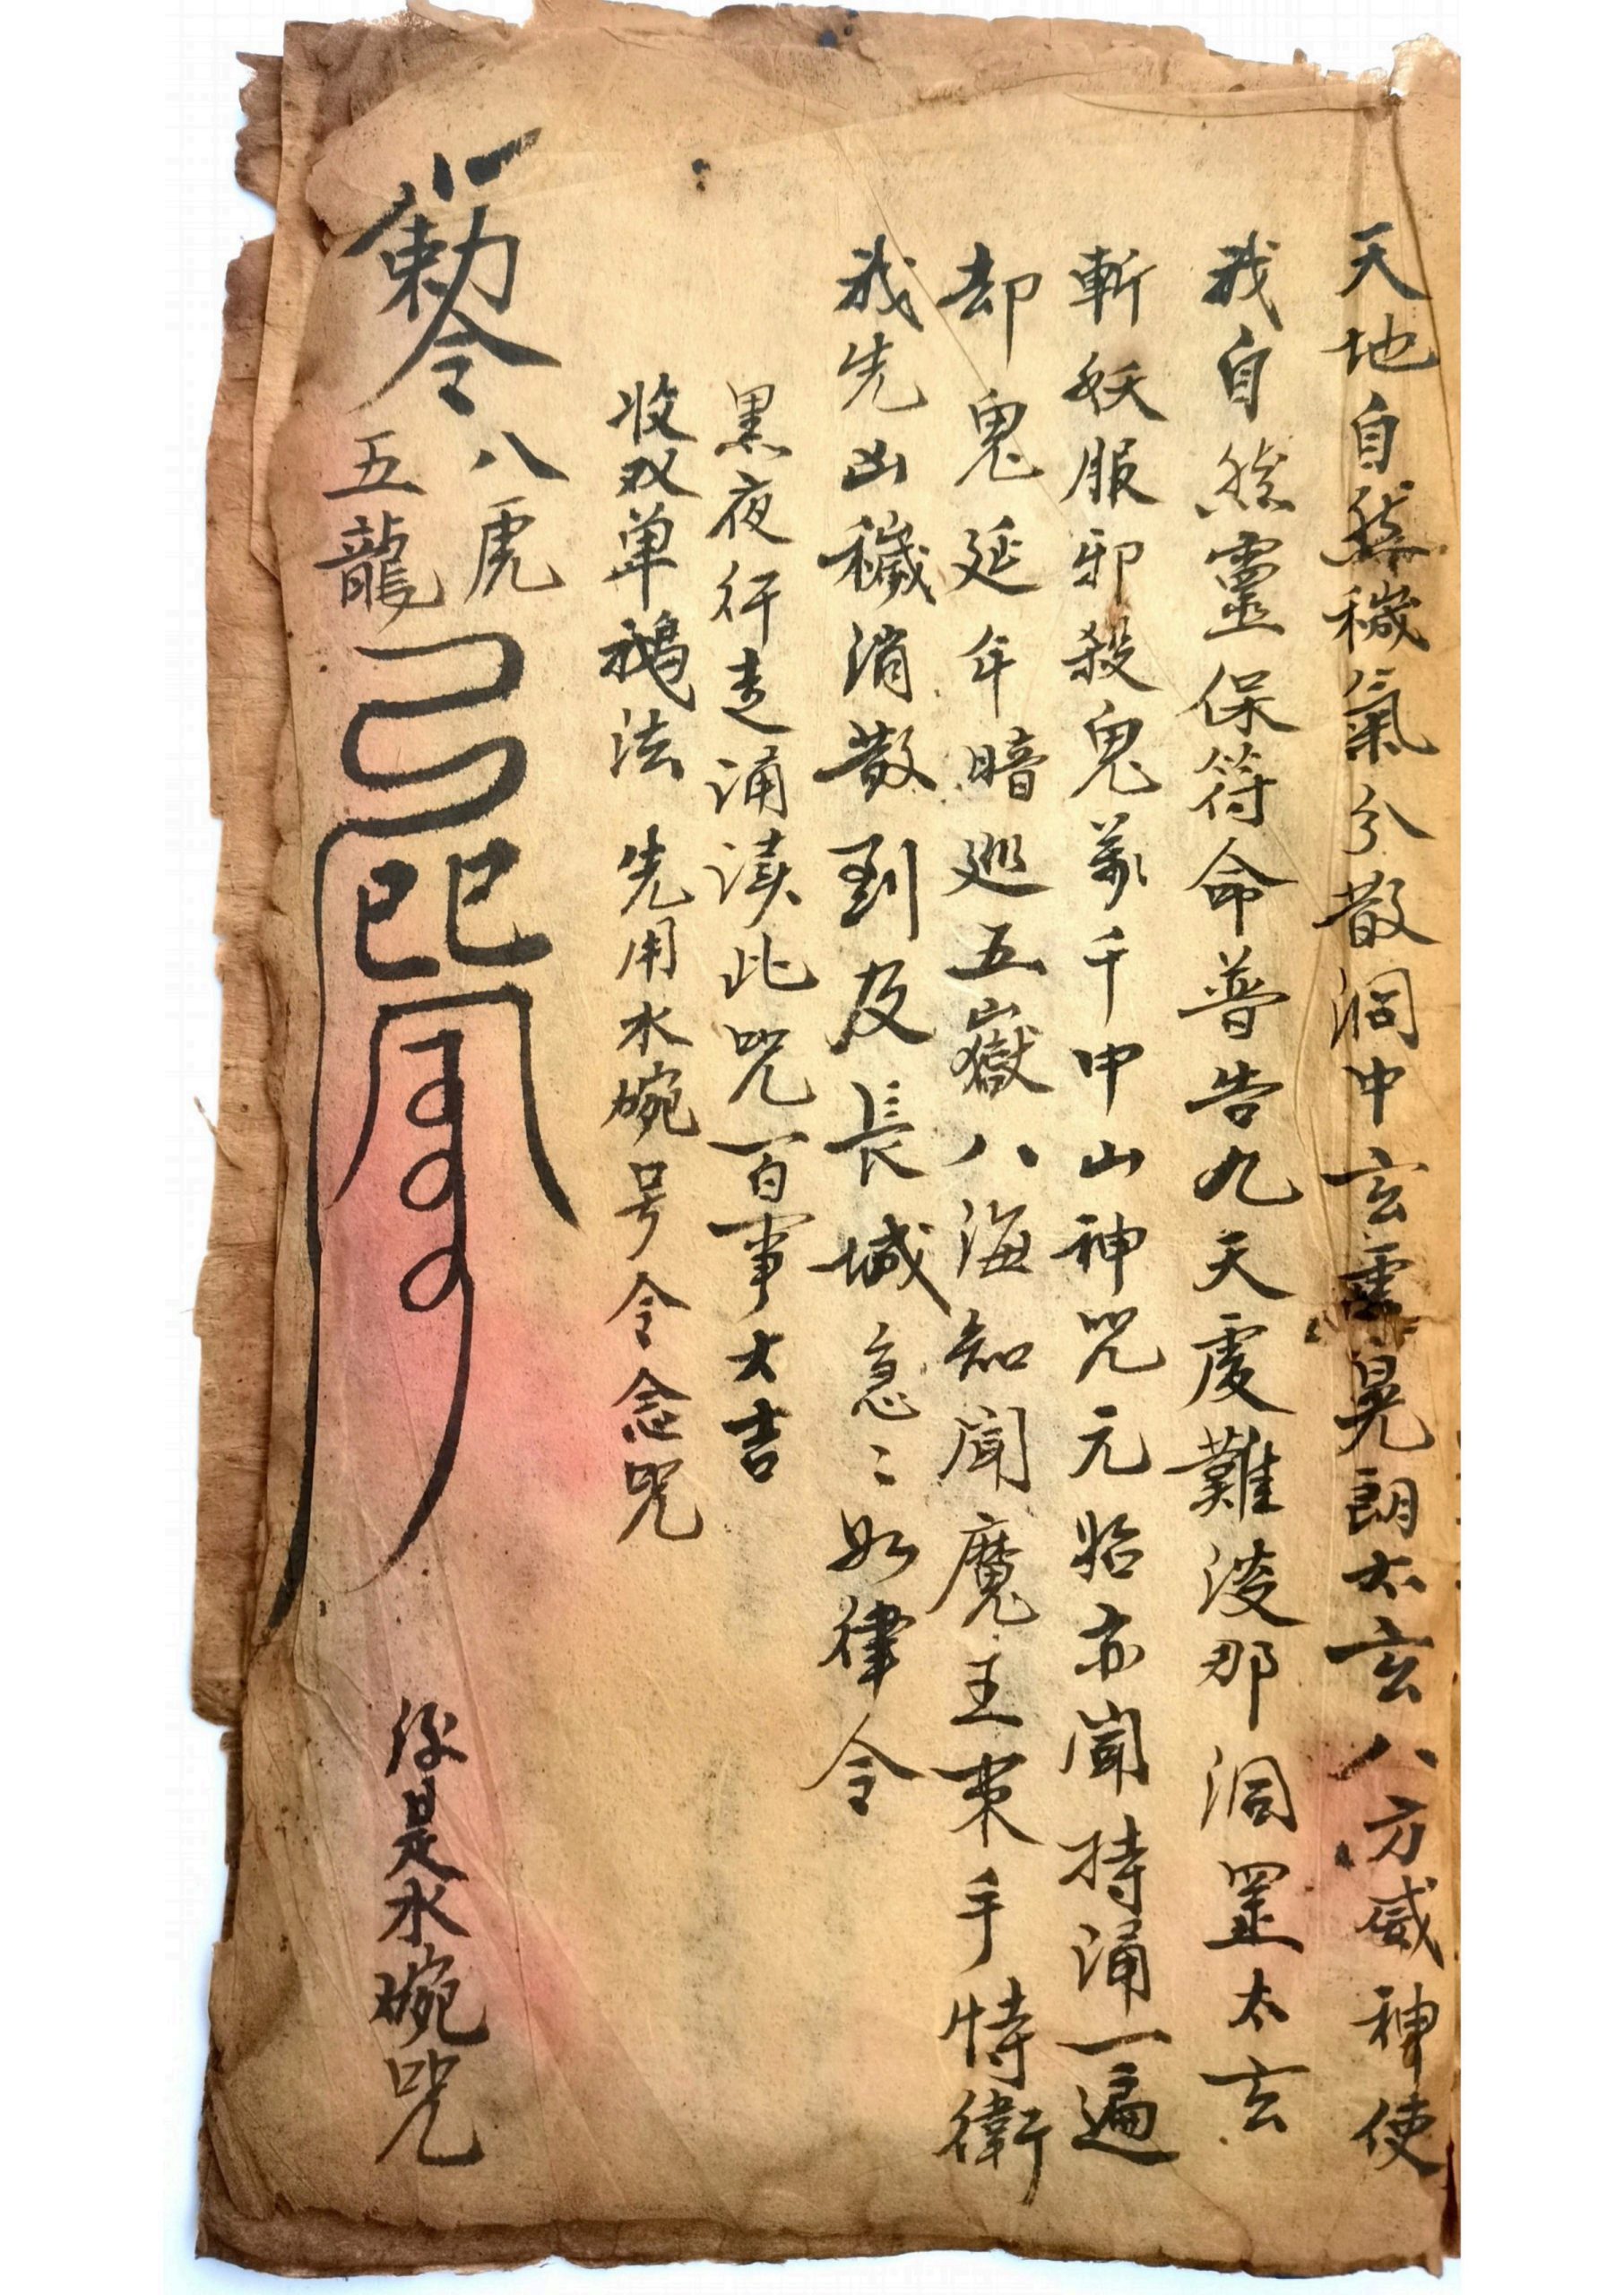 天地自然穢氣分散洞中玄虛晃朗太玄八方威神使
我自然靈保符命普告九天虔難淩那洞罡太玄
斬妖服邪殺鬼萬千中山神咒元始亦聞持誦一遍
却鬼延年暗巡五嶽八海知聞魔王束手恃衛
我先凶穢消散到及長城急〻如律令
黑夜行走誦讀此咒百事大吉
收双单鵝法 先用水碗号令念咒
勅令 八虎
五龍
後是水碗咒